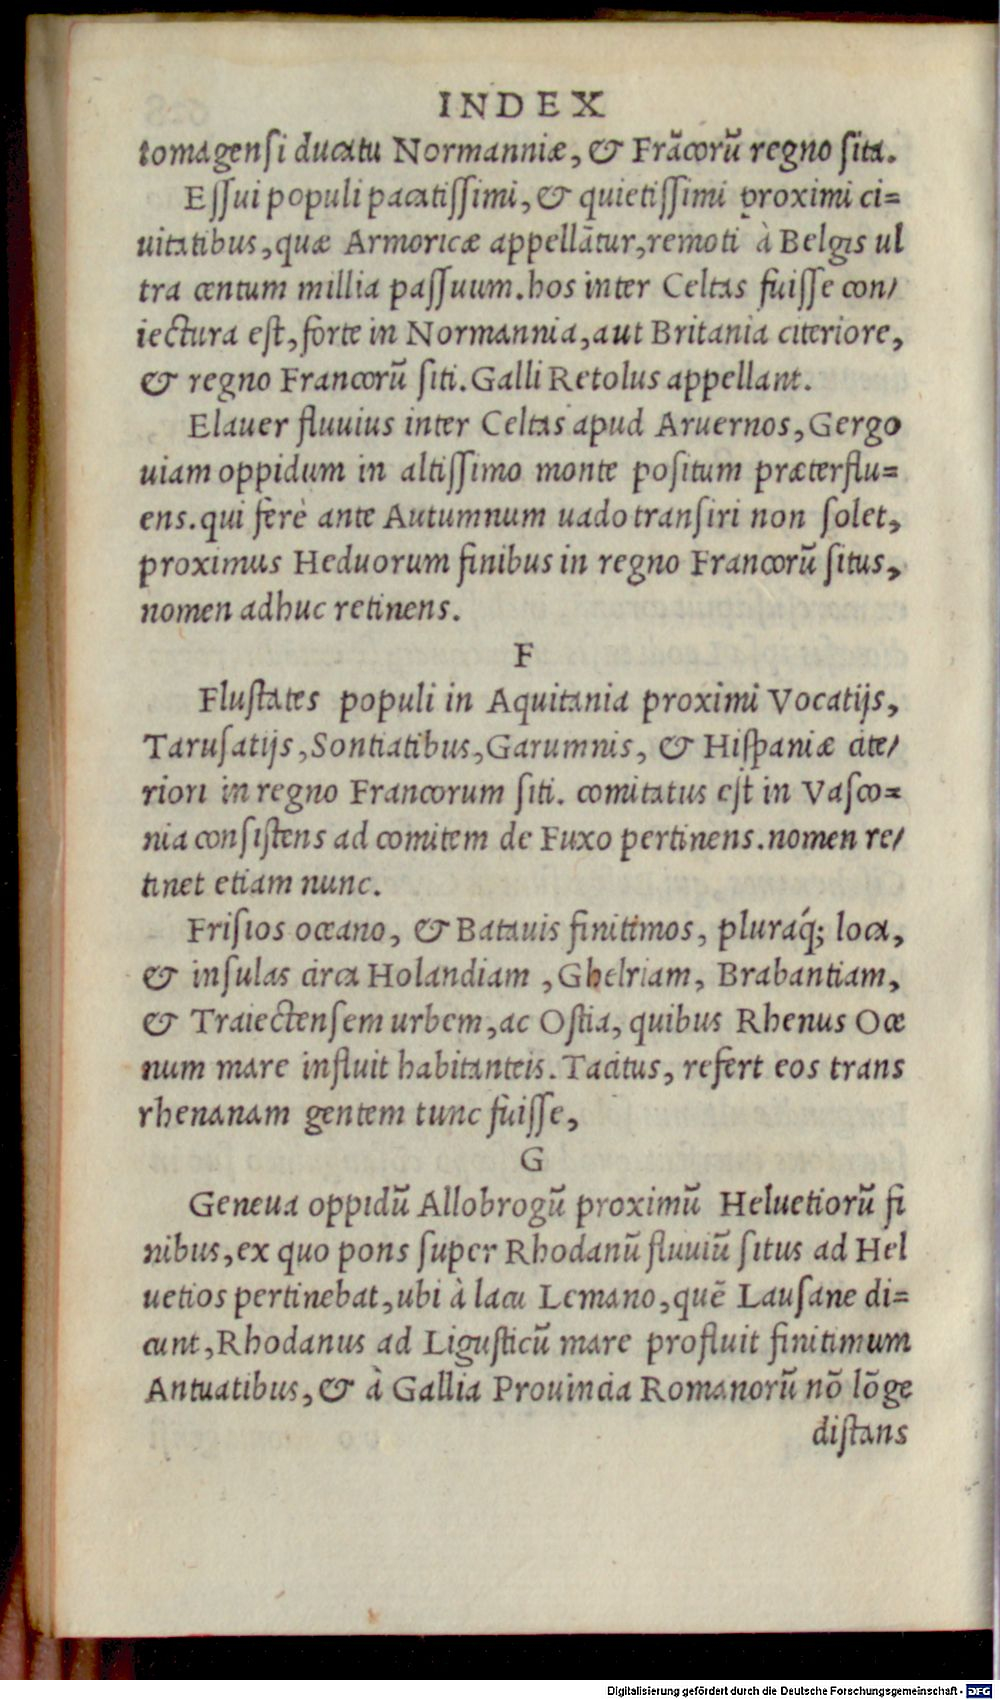 INDEX
tomagensi ducatu Normanniæ, & Frãcorũ regno sita.
Essui populi pacatissimi, & quietissimi proximi ci=
uitatibus, quæ Armoricæ appellãtur, remoti à Belgis ul
tra centum millia passuum. hos inter Celtas fuisse con/
iectura est, forte in Normannia, aut Britania citeriore,
& regno Francorũ siti. Galli Retolus appellant.
Elauer fluuius inter Celtas apud Aruernos, Gergo
uiam oppidum in altissimo monte positum præterflu=
ens. qui ferè ante Autumnum uado transiri non solet,
proximus Heduorum finibus in regno Francorũ situs,
nomen adhuc retinens.
F
Flustates populi in Aquitania proximi Vocatijs,
Tarusatijs, Sontiatibus, Garumnis, & Hispaniæ cite/
riori in regno Francorum siti. comitatus est in Vasco=
nia consistens ad comitem de Fuxo pertinens. nomen re/
tinet etiam nunc.
Frisios oceano, & Batauis finitimos, pluraq́; loca,
& insulas circa Holandiam, Ghelriam, Brabantiam,
& Traiectensem urbem, ac Ostia, quibus Rhenus Oce
num mare influit habitanteis. Tacitus, refert eos trans
rhenanam gentem tunc fuisse,
G
Geneua oppidũ Allobrogũ proximũ Heluetiorũ fi
nibus, ex quo pons super Rhodanũ fluuiũ situs ad Hel
uetios pertinebat, ubi à lacu Lemano, quẽ Lausane di=
cunt, Rhodanus ad Ligusticũ mare profluit finitimum
Antuatibus, & à Gallia Prouincia Romanorũ nõ lõge
distans
Digitalisierung gefördert durch die Deutsche Forschungsgemeinschaft - DFG